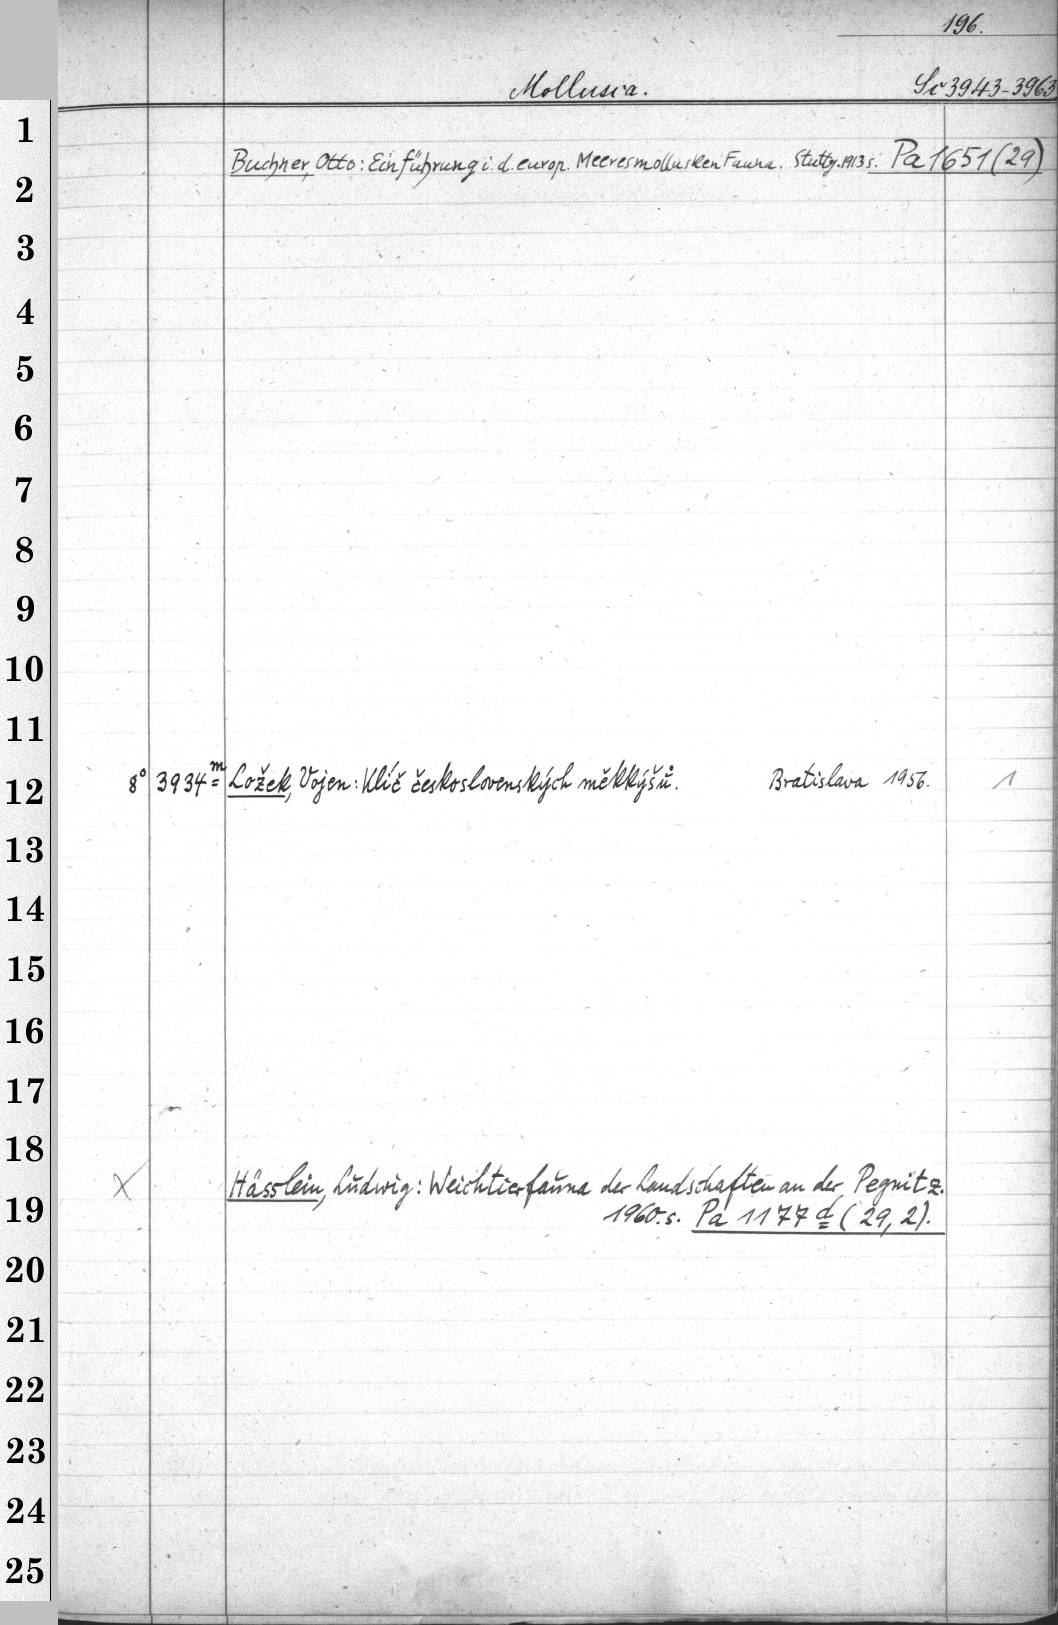 196.
Mollusca. Sv 3943-3963
1
Buchner, Otto: Einführung i. d. europ. Meeresmollusken Fauna. Stuttg. 1913 s. Pa 1651 (29)
2
3
4
5
6
7
8
9
10
11
8° 3934 m Ložek, Vojen: Klíč československých měkkýšů. Bratislava 1956. 1
12
13
14
15
16
17
18
X Hässlein, Ludwig: Weichtierfauna der Landschaften an der Pegnitz.
19
1960. s. Pa 1177 d (29, 2).
20
21
22
23
24
25